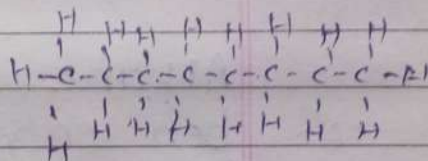 H H H H H H H H
H-C-C-C-C-C-C-C-C-H
H H H H H H H H